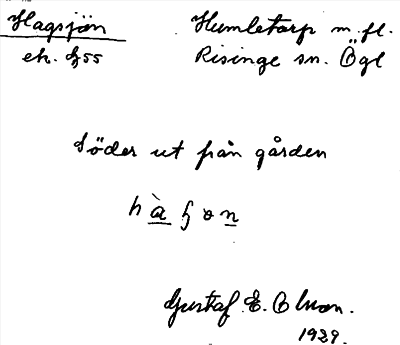 Hagsjön
ek. 55
Humletorp m. fl.
Risinge sn. Ögl
Söder ut från gården
Gustaf E. Olson.
1929.